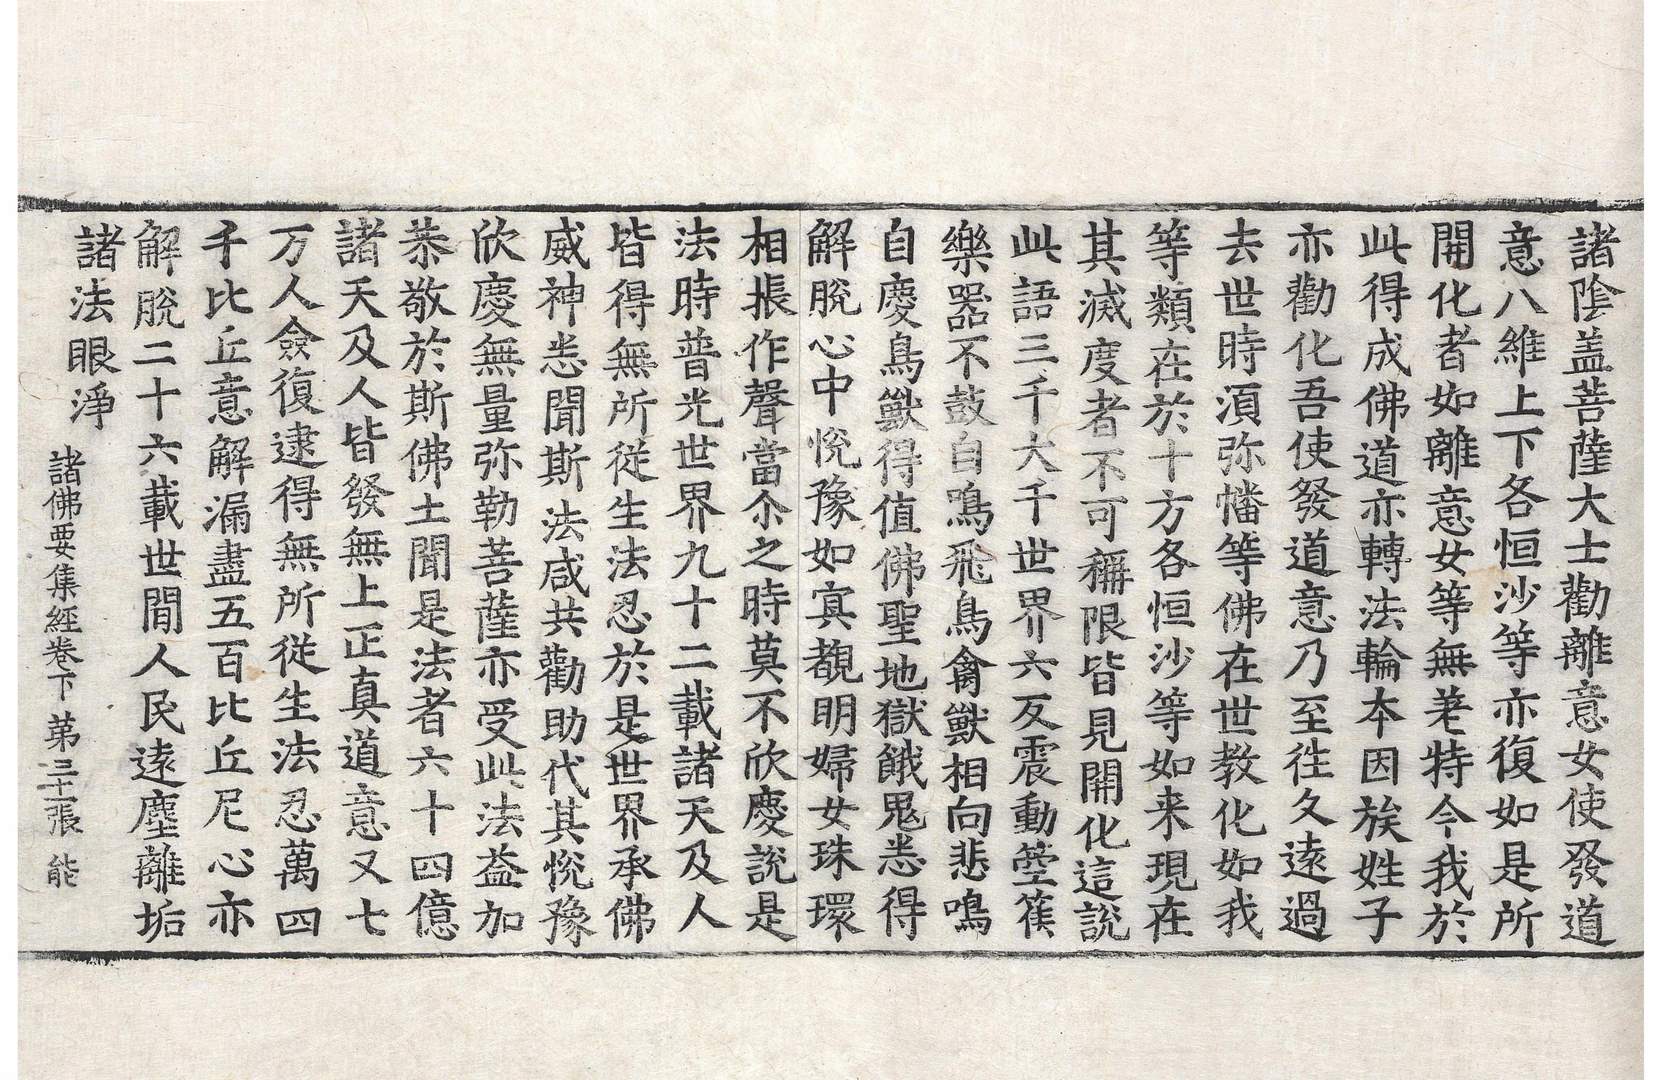 諸陰盖菩薩大士勸離意女使發道
意八維上下各恒沙等亦復如是所
開化者如離意女等無差特今我於
此得成佛道亦轉法輪本因族姓子
亦勸化吾使發道意乃至往久遠過
去世時湏弥幡等佛在世教化如我
等類在於十方各恒沙等如来現在
其滅度者不可稱限皆見開化這說
此語三千大千世界六反震動箜篌
樂器不鼓自鳴飛鳥禽獸相向悲鳴
自慶鳥獸得值佛聖地獄餓鬼悉得
解脫心中悅豫如冥覩明婦女珠環
相振作聲當尒之時莫不欣慶說是
法時普光世界九十二載諸天及人
皆得無所從生法忍於是世界承佛
威神悉聞斯法咸共勸助代其悅豫
欣慶無量弥勒菩薩亦受此法益加
恭敬於斯佛土聞是法者六十四億
諸天及人皆發無上正真道意又七
万人僉復逮得無所從生法忍萬四
千比丘意解漏盡五百比丘尼心亦
解脫二十六載世間人民遠塵離垢
諸法眼淨
諸佛要集經卷下 第三十一張 能